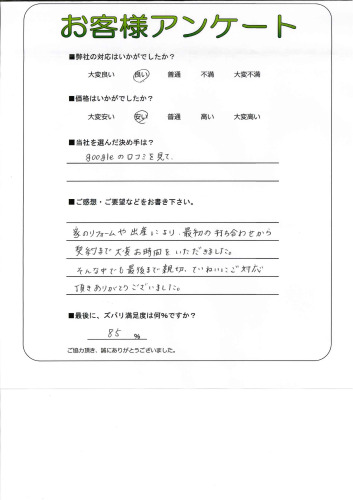 お客様アンケート
■弊社の対応はいかがでしたか？
大変良い　良い　普通　不満　大変不満
■価格はいかがでしたか？
大変安い　安い　普通　高い　大変高い
■当社を選んだ決め手は？
googleの口コミを見て.
■ご感想・ご要望などをお書き下さい。
家のリフォームや出産により、最初の打ち合わせから
契約まで大変お時間をいただきました。
そんな中でも最後まで親切、ていねいにご対応
頂きありがとうございました。
■最後に、ズバリ満足度は何％ですか？
85　％
ご協力頂き、誠にありがとうございました。